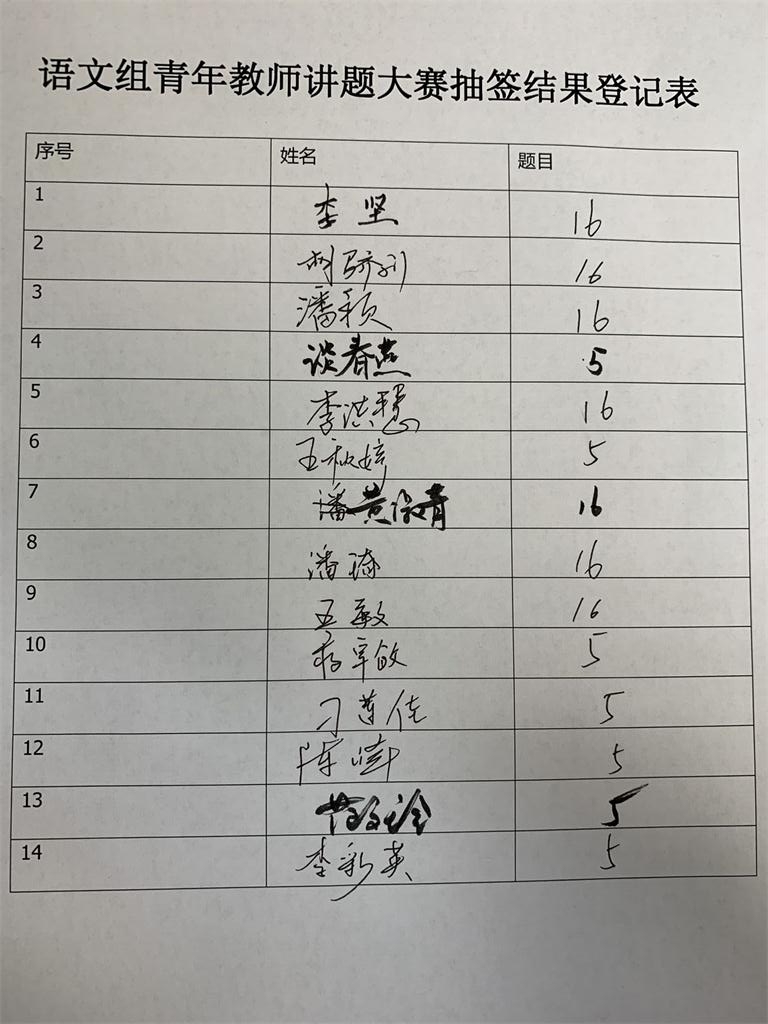 语文组青年教师讲题大赛抽签结果登记表
序号 姓名 题目
1 李坚 16
2 16
3 潘颖 16
4 谈春燕 5
5 李洪慧 16
6 王秋婷 5
7 潘黄淑青 16
8 潘琦 16
9 王敏 16
10 5
11 刁莲佳 5
12 陈 5
13 5
14 李彩英 5